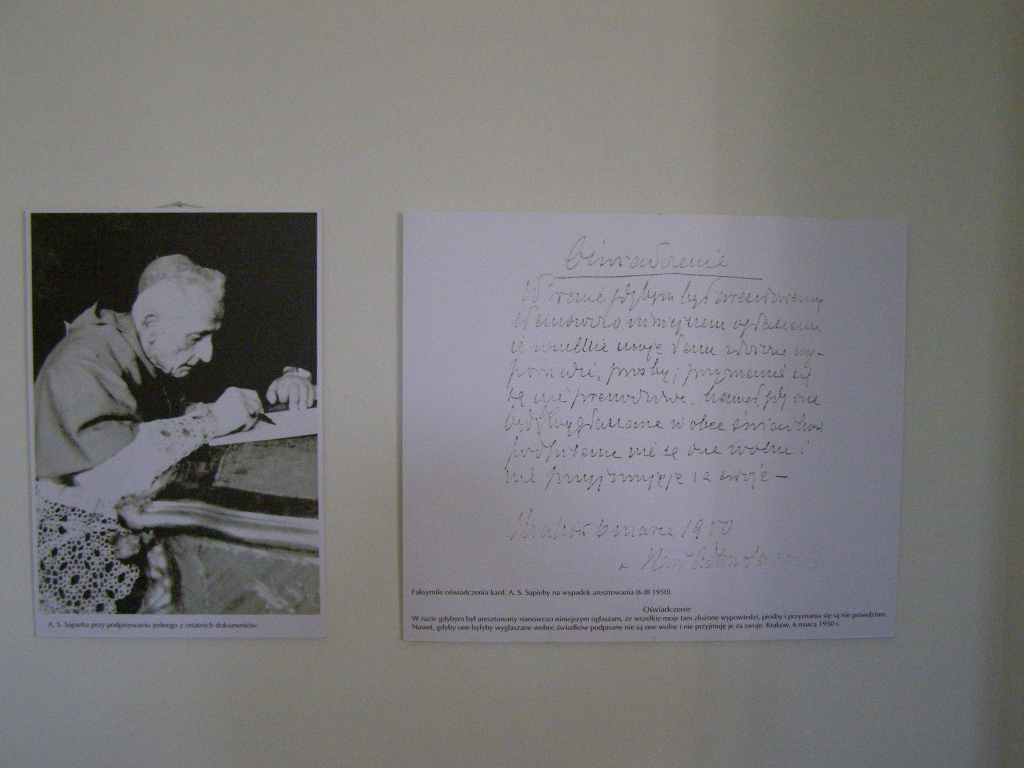 A. S. Sapieha przy podpisywaniu jednego z ostatnich dokumentów
Oświadczenie
W razie gdybym był aresztowany
stanowczo niniejszem ogłaszam
że wszelkie moje tam złożone wy-
powiedzi, prośby i przyznania się
są nie prawdziwe. Nawet, gdy one
były wygłaszane wobec świadków
podpisane nie są one wolne i
nie przyjmuję je za swoje –
Kraków 6 marca 1950
Faksymile oświadczenia kard. A. S. Sapiehy na wypadek aresztowania (6 III 1950).
Oświadczenie
W razie gdybym był aresztowany stanowczo niniejszym ogłaszam, że wszelkie moje tam złożone wypowiedzi, prośby i przyznania się są nie prawdziwe.
Nawet, gdyby one byłyby wygłaszane wobec świadków podpisane nie są one wolne i nie przyjmuję je za swoje. Kraków, 6 marca 1950 r.